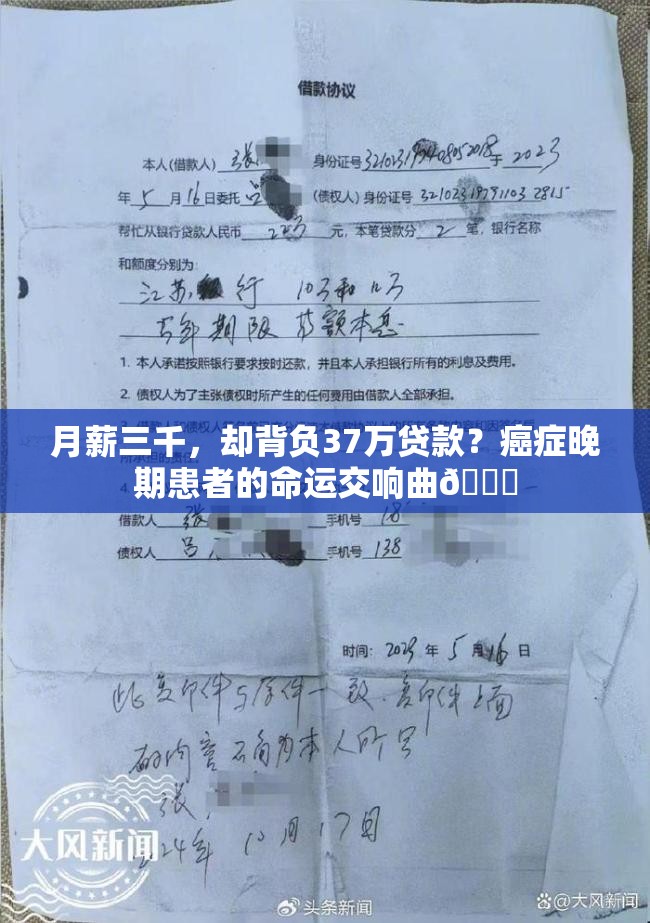 借款协议
本人(借款人) 张 身份证号 于 2023
年 5 月 16 日委托 吕 (债权人)身份证号 321023197911032815
帮忙从银行贷款人民币 22万 元，本笔贷款分 2 笔，银行名称
和额度分别为：
江苏银行 10万和12万
五年期限 等额本息
1. 本人承诺按照银行要求按时还款，并且本人承担银行所有的利息及费用。
2. 债权人为了主张债权时所产生的任何费用由借款人全部承担。
月薪三千，却背负37万贷款？癌症晚
期患者的命运交响曲ð
借款人 张 手机号 18
债权人 吕 手机号 138
时间：2023 年 5 月 16 日
此复印件与原件一致.复印件上面
的内容 为本人所写
张
2024年 10月17日
大风新闻
头条新闻
@大风新闻